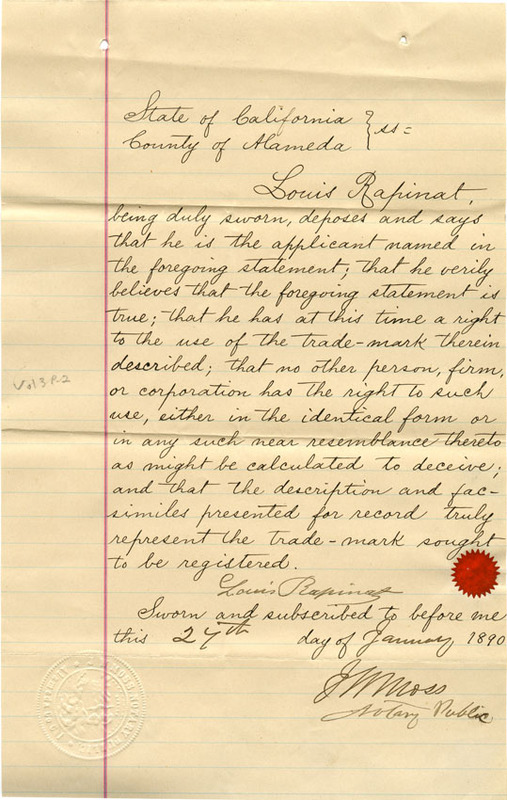 State of California } ss=
County of Alameda
Louis Rapinat,
being duly sworn, deposes and says
that he is the applicant named in
the foregoing statement; that he verily
believes that the foregoing statement is
true; that he has at this time a right
to the use of the trade-mark therein
described; that no other person, firm,
or corporation has the right to such
use, either in the identical form or
in any such near resemblance thereto
as might be calculated to deceive;
and that the description and fac-
similes presented for record truly
represent the trade-mark sought
to be registered.
Louis Rapinat
Sworn and subscribed to before me
this 27th day of January 1890
J W Moss
Notary Public
Vol 3 P. 2